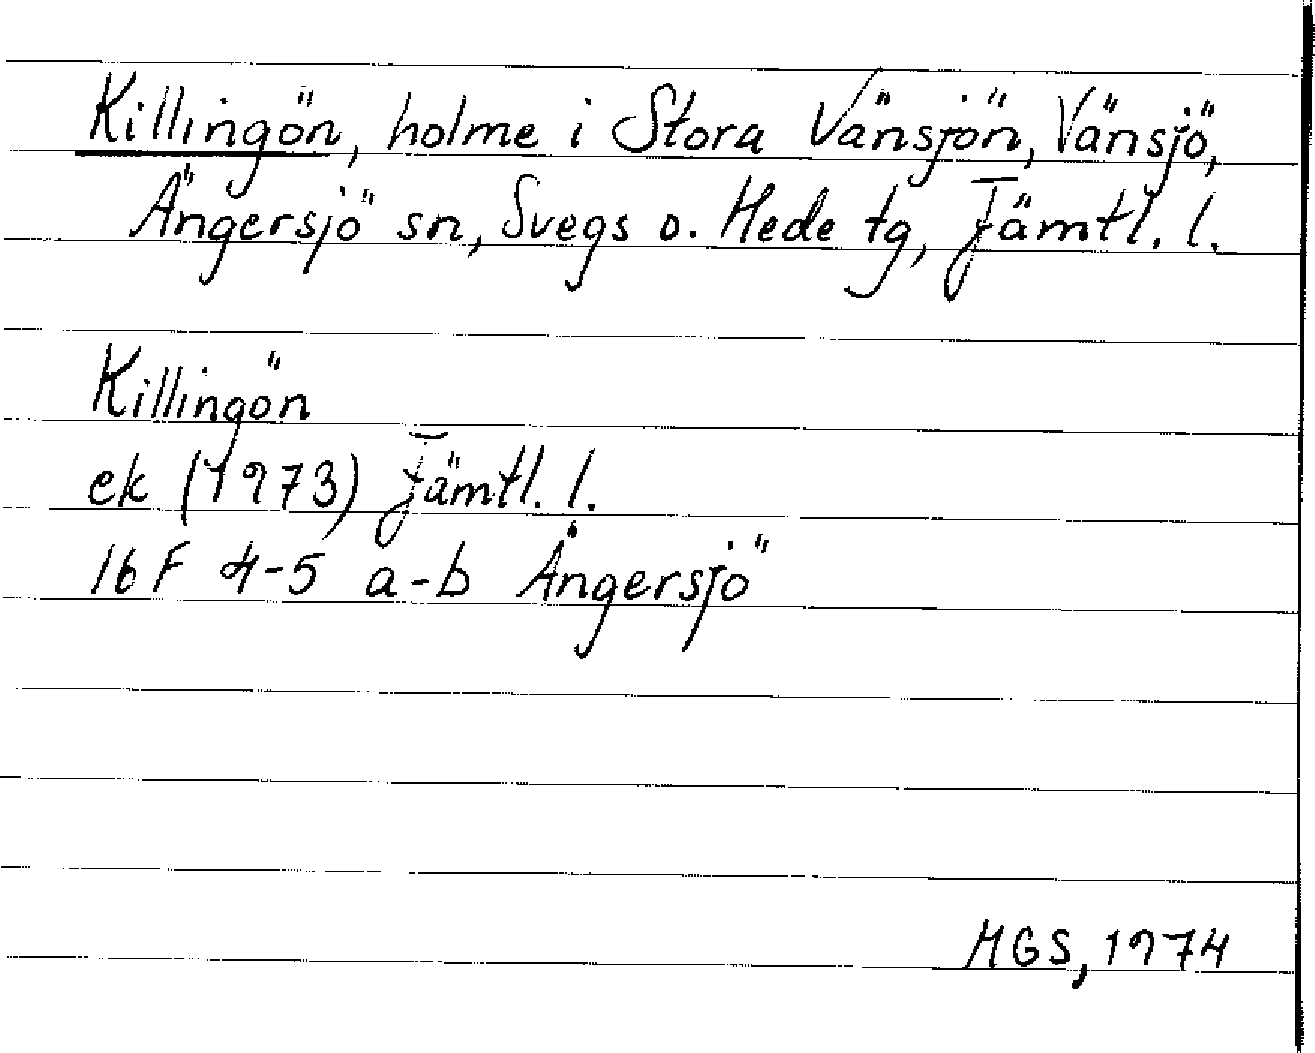 Killingön, holme i Stora Vänsjön, Vänsjö,
Ängersjö sn, Svegs o. Hede tg, Jämtl. l.
Killingön
ek (1973) Jämtl. l.
16F 4-5 a-b Ångersjö
MGS, 1974